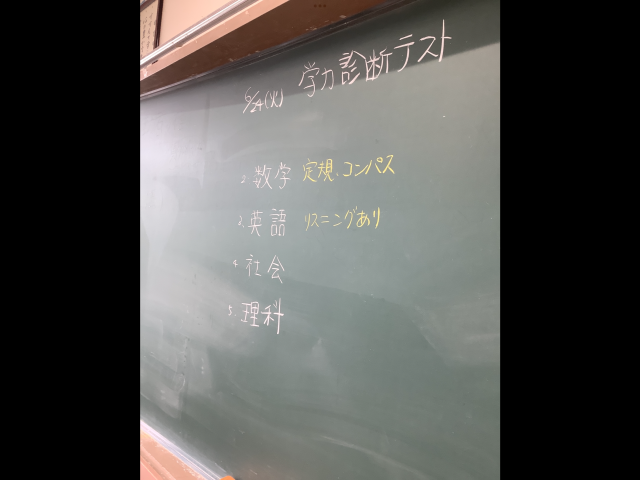 6/24(火) 学力診断テスト
2. 数学 定規、コンパス
3. 英語 リスニングあり
4. 社会
5. 理科